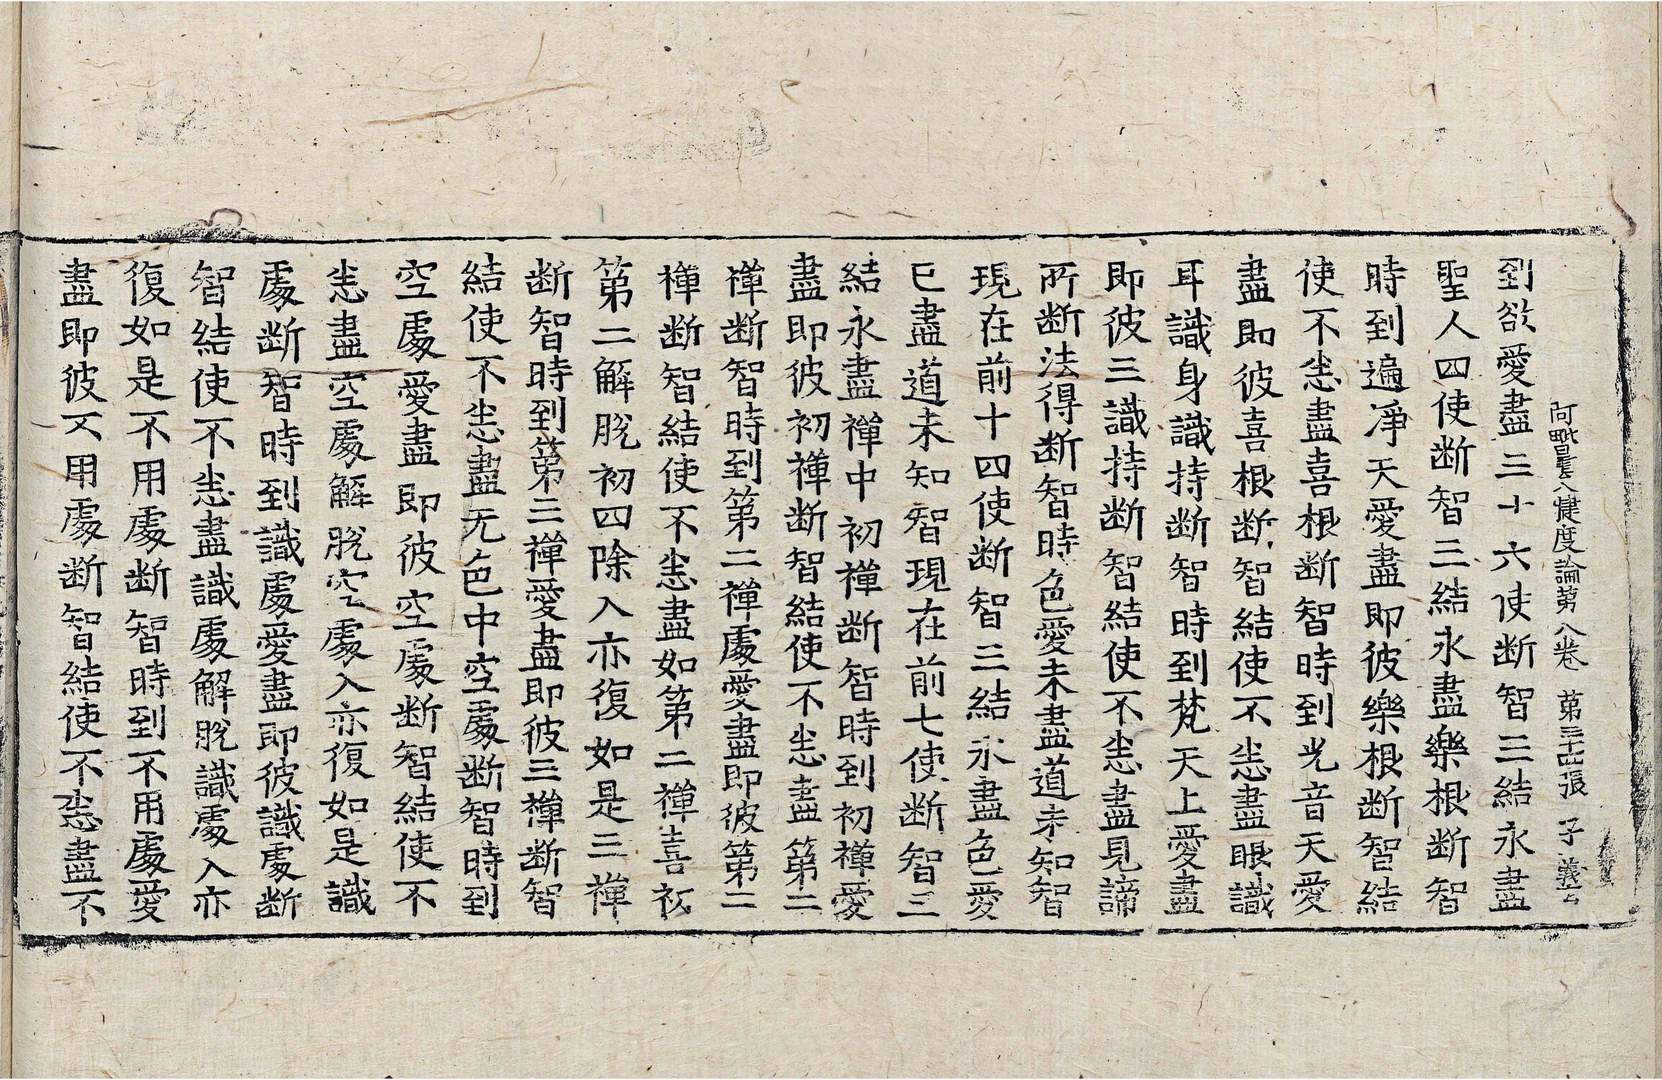 阿毗曇八犍度論第八卷 第三十四張 子 義公
到欲愛盡三十六使断智三結永盡
聖人四使断智三結永盡樂根断智
時到遍淨天愛盡即彼樂根断智結
使不恙盡喜根断智時到光音天愛
盡即彼喜根断智結使不恙盡眼識
耳識身識持断智時到梵天上愛盡
即彼三識持断智結使不恙盡見諦
所断法得断智時色愛未盡道未知智
現在前十四使断智三結永盡色愛
已盡道未知智現在前七使断智三
結永盡禪中初禪断智時到初禪愛
盡即彼初禪断智結使不恙盡第二
禪断智時到第二禪處愛盡即彼第二
禪断智結使不恙盡如第二禪喜初
第二解脫初四除入亦復如是三禪
断智時到第三禪愛盡即彼三禪断智
結使不恙盡无色中空處断智時到
空處愛盡即彼空處断智結使不
恙盡空處解脫空處入亦復如是識
處断智時到識處愛盡即彼識處断
智結使不恙盡識處解脫識處入亦
復如是不用處断智時到不用處愛
盡即彼不用處断智結使不恙盡不